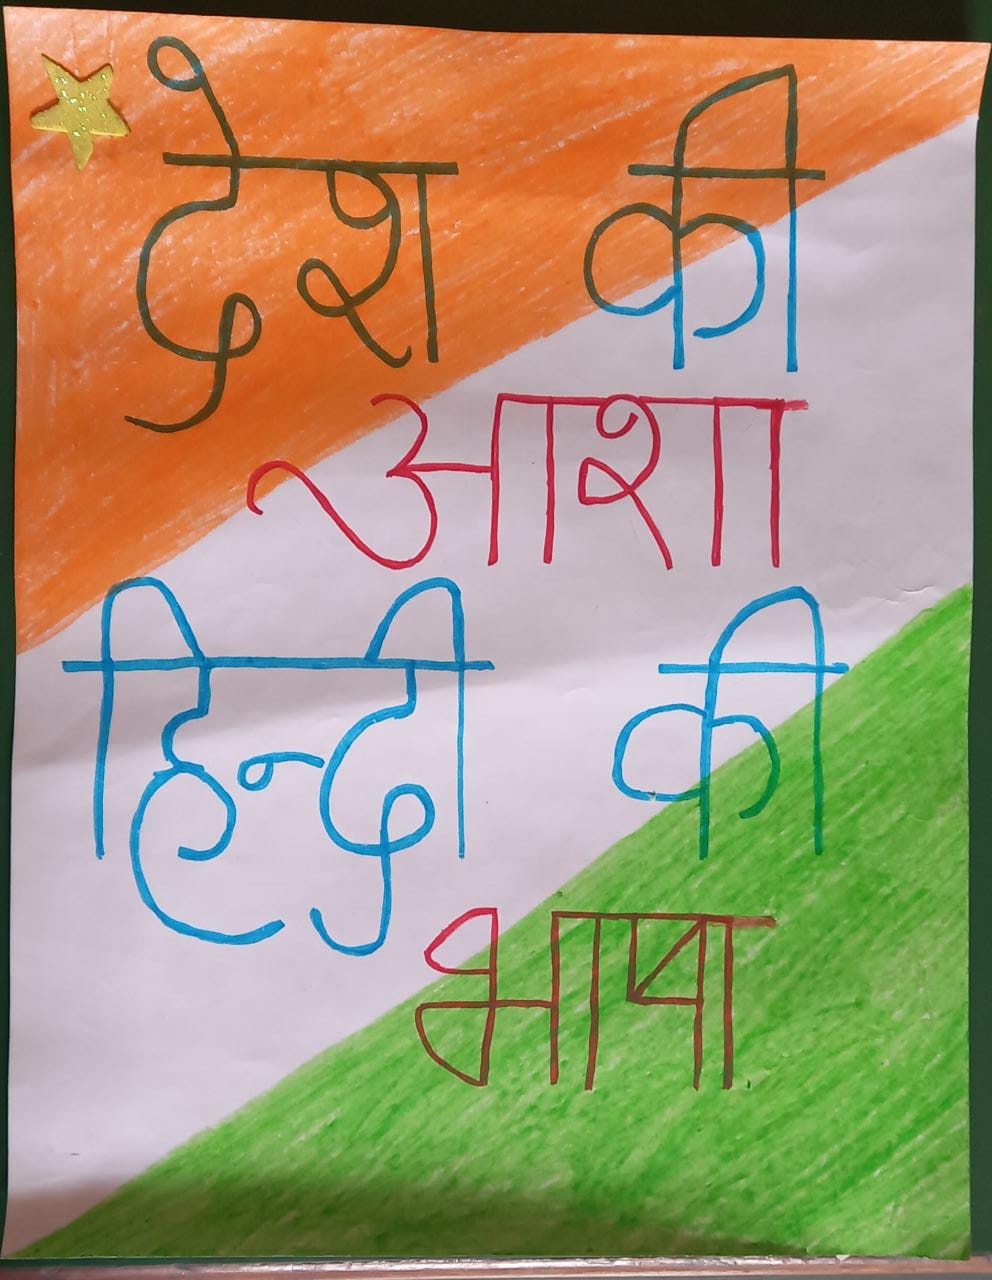 देश की
आशा
हिन्दी की
भाषा